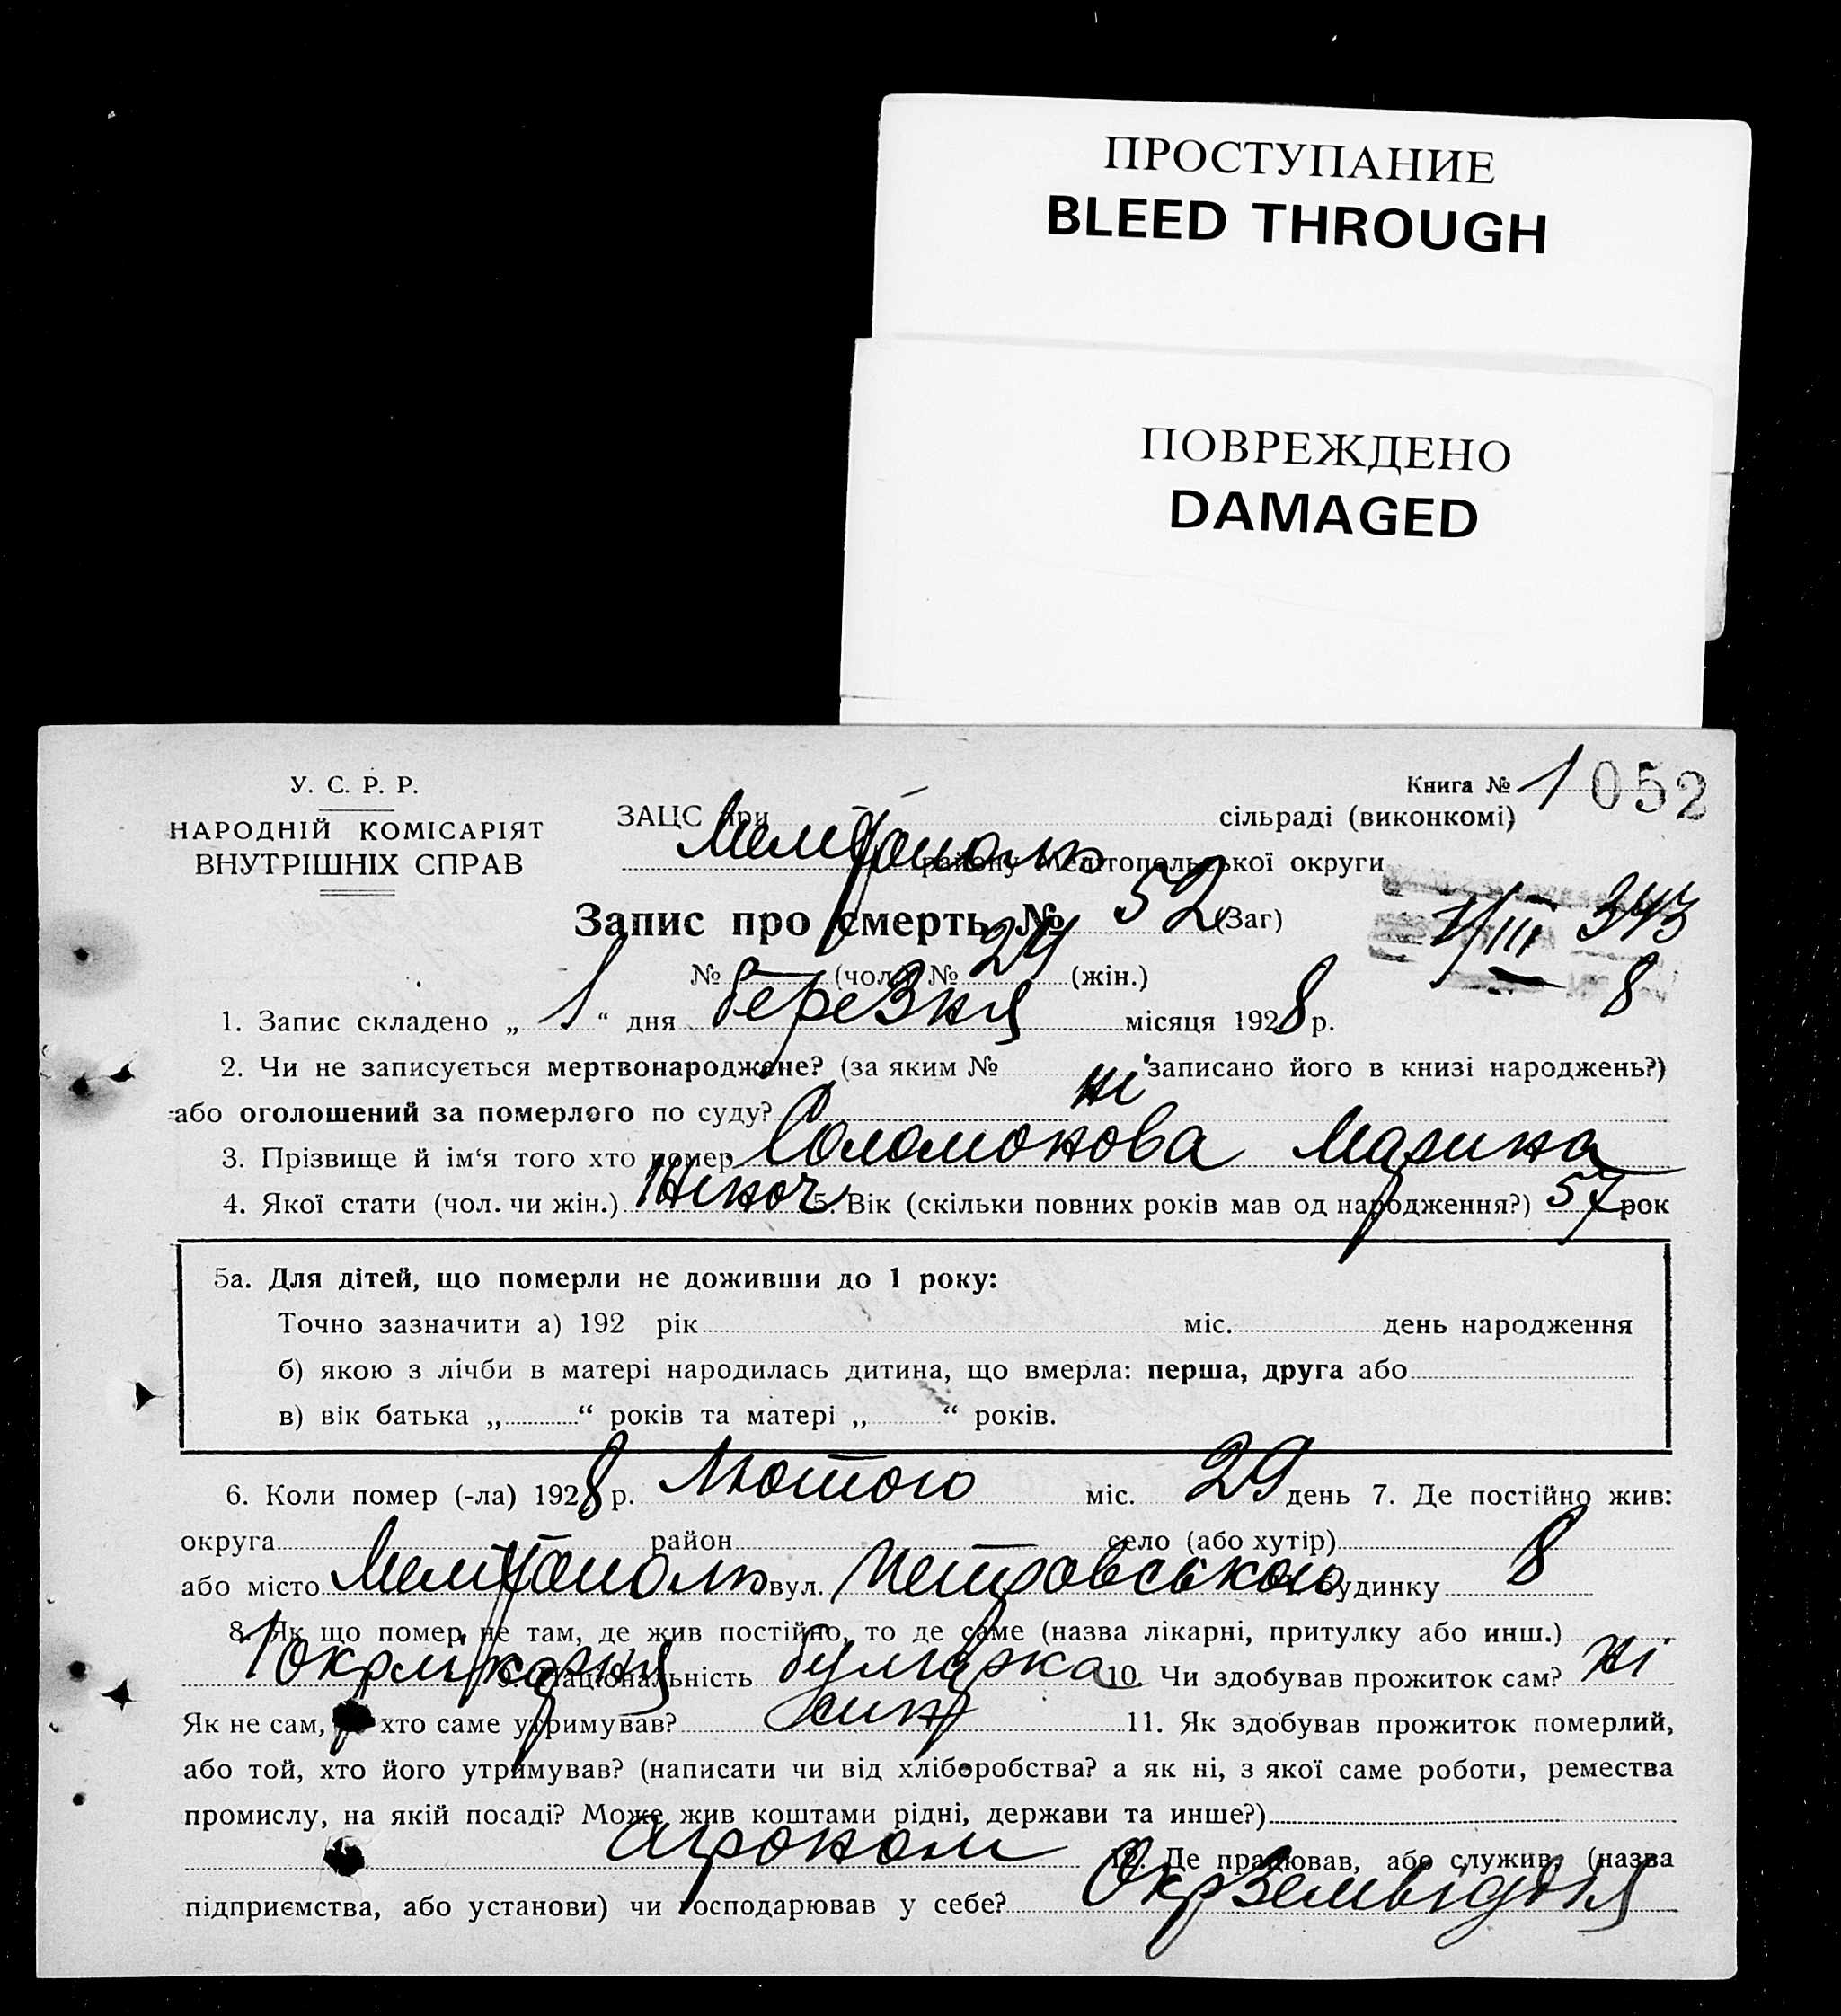 ПРОСТУПАНИЕ
BLEED THROUGH
ПОВРЕЖДЕНО
DAMAGED
У. С. Р. Р.
НАРОДНІЙ КОМІСАРІЯТ
ВНУТРІШНІХ СПРАВ
Книга № 1 052
ЗАЦС при сільраді (виконкомі)
Мелітополь району Мелітопольської округи
Запис про смерть № 52 (Заг)
1/III 343
№ — (чол.) № 24 (жін.)
8
1. Запис складено „ 1 “ дня березня місяця 1928 р.
2. Чи не записується мертвонароджене? (за яким № записано його в книзі народжень?)
або оголошений за померлого по суду? ні
3. Прізвище й ім‘я того хто помер Соломонова Марина
4. Якої стати (чол. чи жін.) Жіноч 5. Вік (скільки повних років мав од народження?) 57 рок
5а. Для дітей, що померли не доживши до 1 року:
Точно зазначити а) 192 рік міс. день народження
б) якою з лічби в матері народилась дитина, що вмерла: перша, друга або
в) вік батька „ “ років та матері „ “ років.
6. Коли помер (-ла) 1928 р. Лютого міс. 29 день 7. Де постійно жив:
округа район село (або хутір)
або місто Мелітополь вул. Петровського будинку 8
8. Як що помер не там, де жив постійно, то де саме (назва лікарні, притулку або инш.)
1 Окрлікарня 9. Національність булгарка 10. Чи здобував прожиток сам? ні
Як не сам, хто саме утримував? син 11. Як здобував прожиток померлий,
або той, хто його утримував? (написати чи від хліборобства? а як ні, з якої саме роботи, ремества
промислу, на якій посаді? Може жив коштами рідні, держави та инше?)
агроном 12. Де працював, або служив (назва
підприємства, або установи) чи господарював у себе? Окрземвідділ